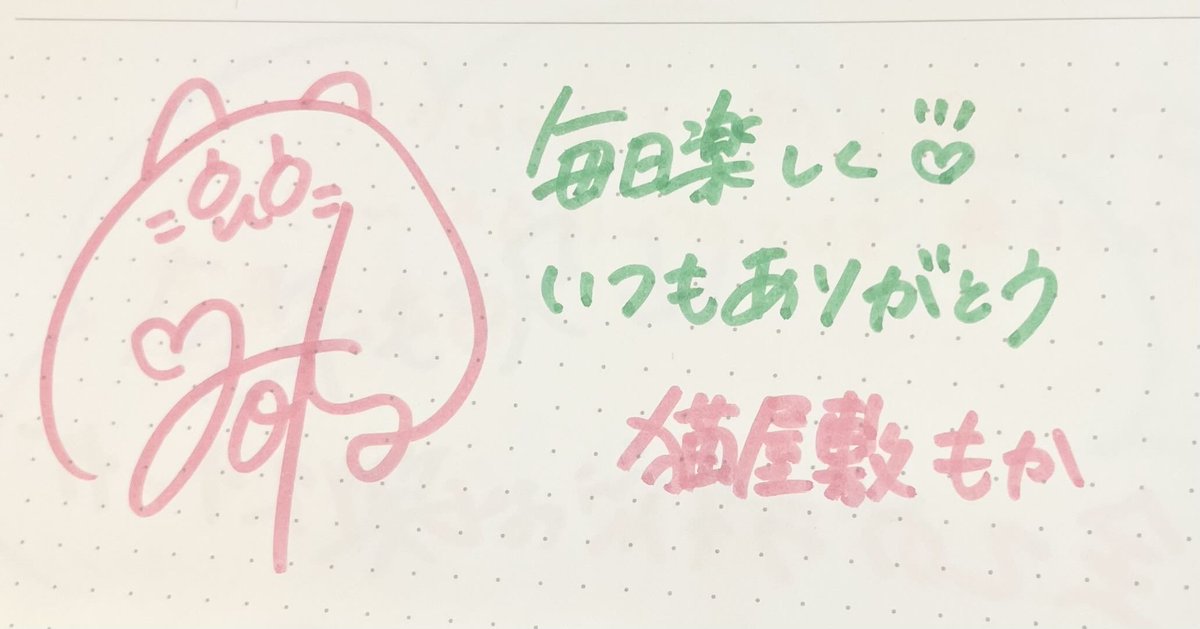 毎日楽しく♡
いつもありがとう
猫屋敷もか